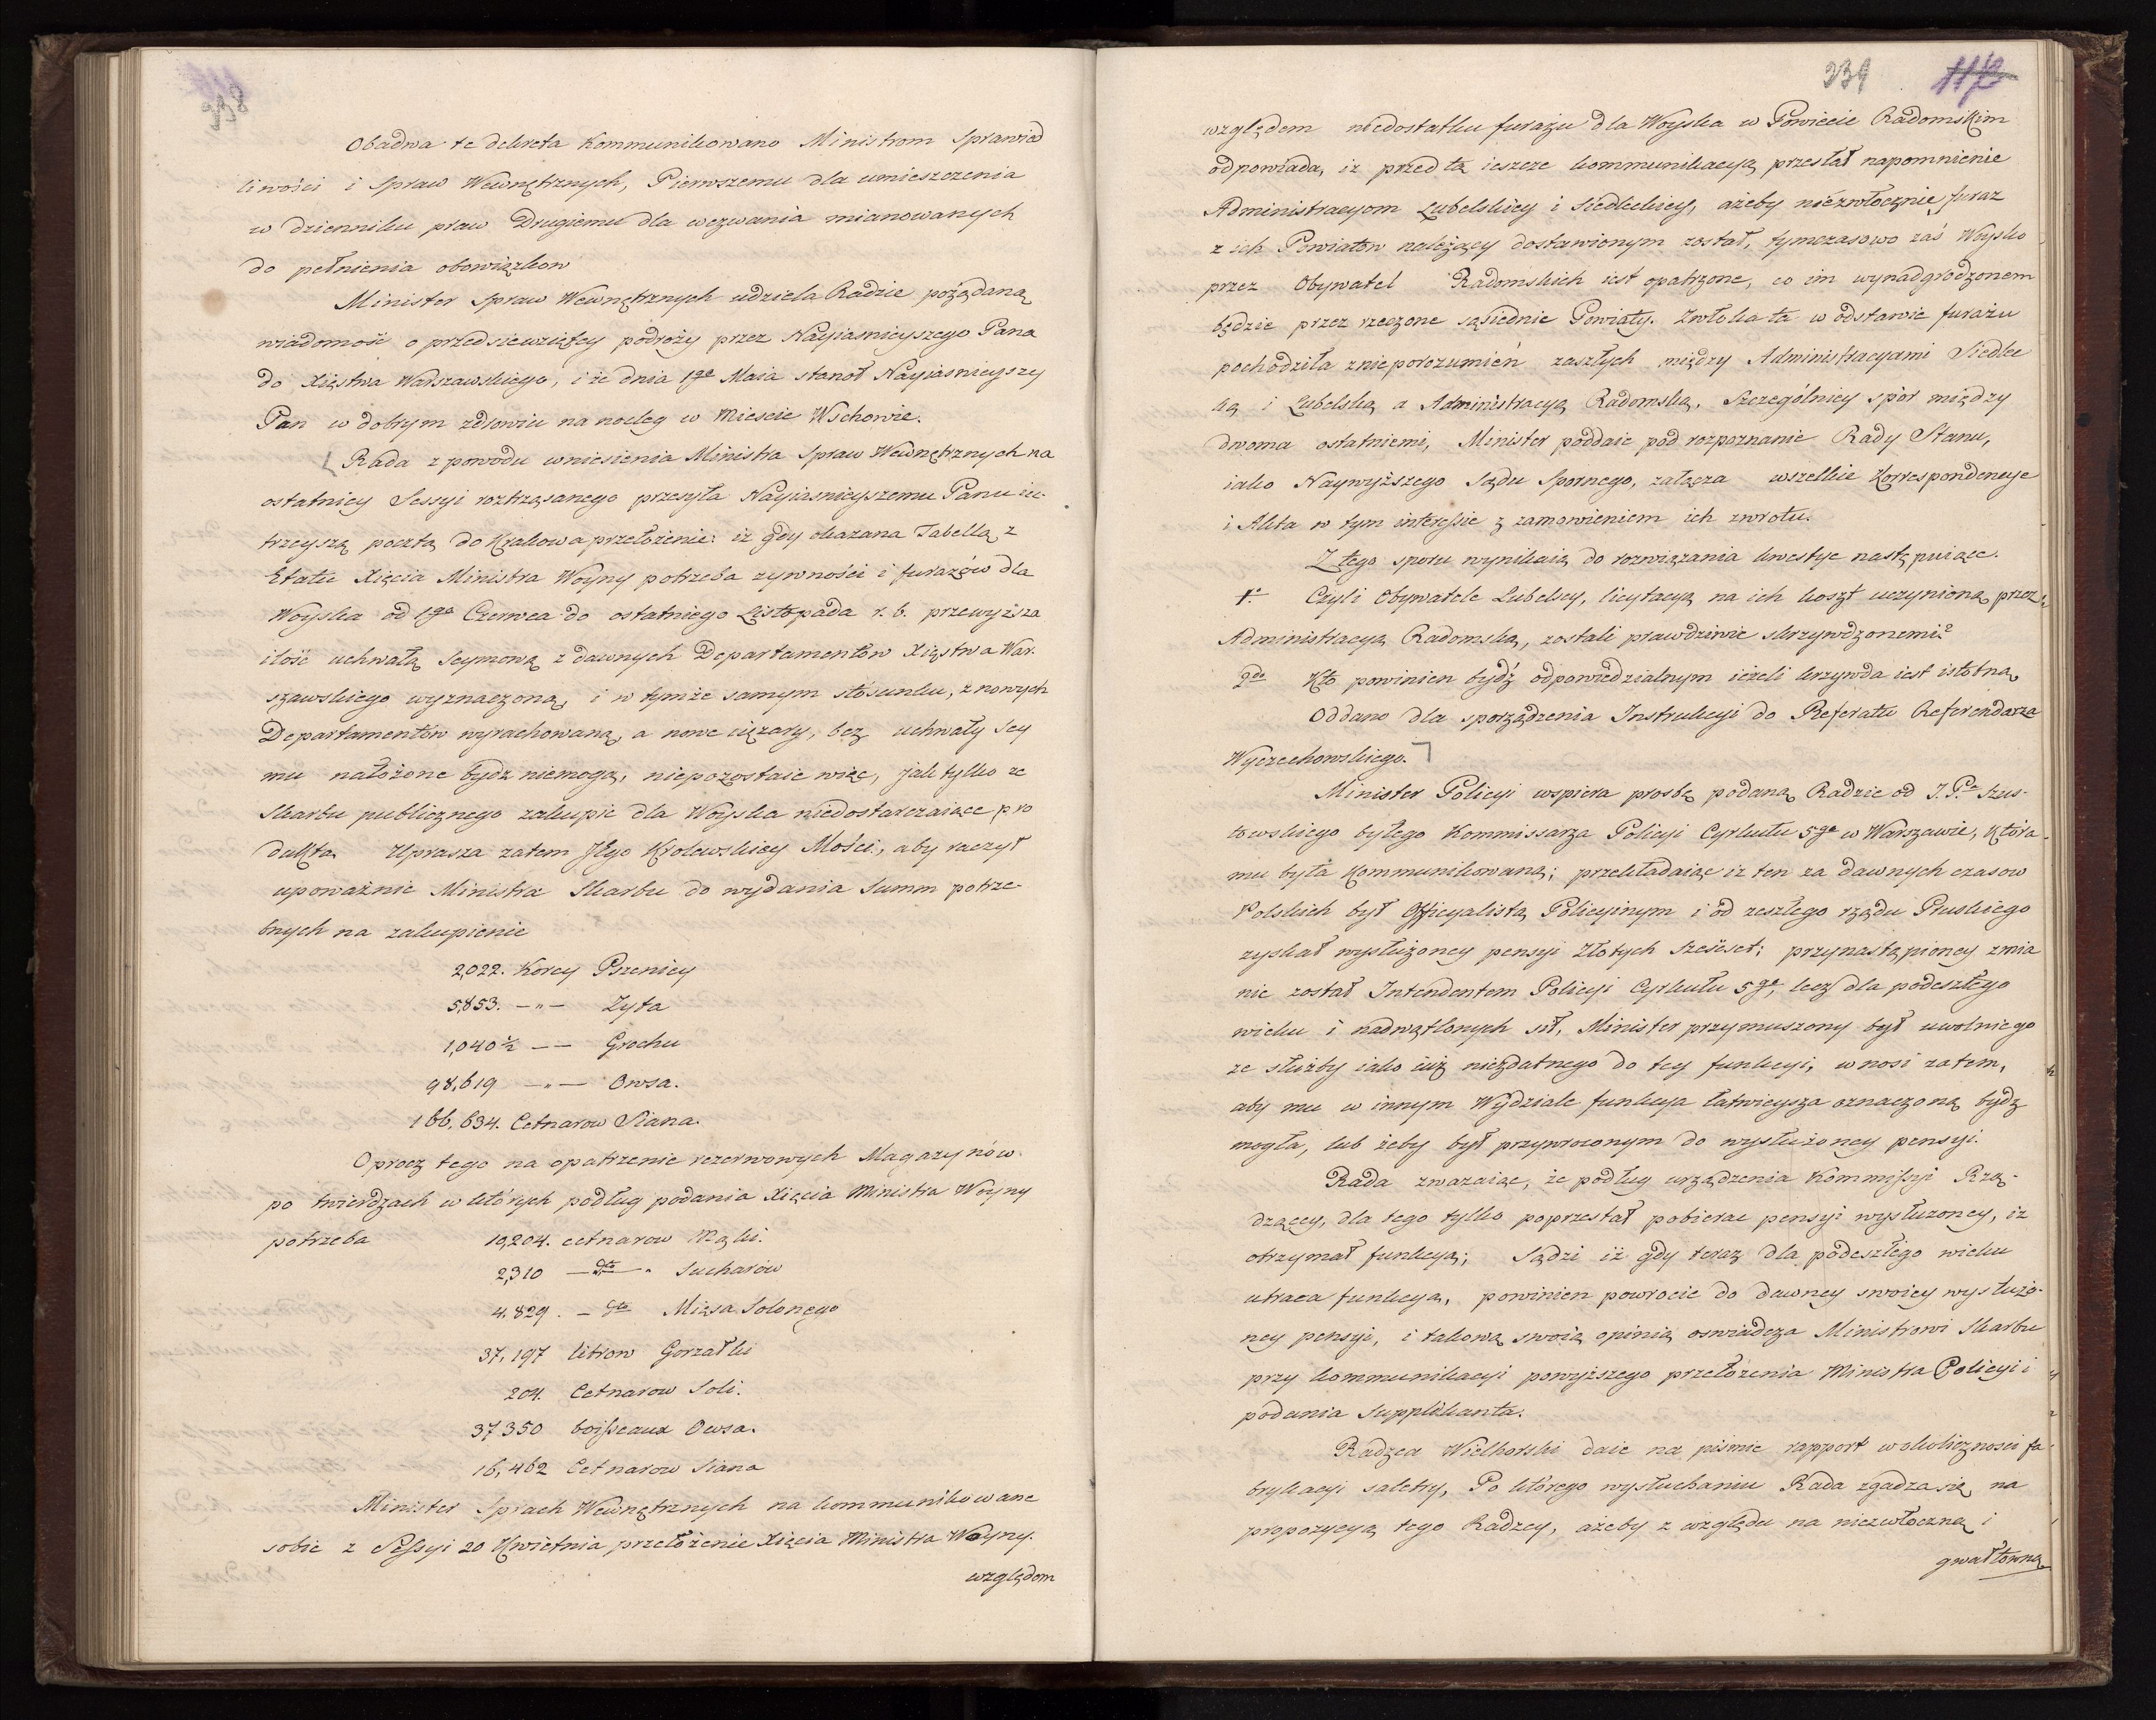 238
Obadwa te dekreta Kommunikowano Ministrom Sprawied
liwości i Spraw Wewnętrznych, Pierwszemu dla umieszczenia
w dzienniku praw Drugiemu dla wezwania mianowanych
do pełnienia obowiązkow
Minister Spraw Wewnętrznych udziela Radzie pożądaną
wiadomość o przedsiewziętey podroży przez Nayiasnieyszego Pana
do Xięstwa Warszawskiego, i że dnia 1go Maia stanoł Nayiasnieyszy
Pan w dobrym zdrowiu na nocleg w Miescie Wschowie.
Rada z powodu wniesienia Ministra Spraw Wewnętrznych na
ostatniey Sessyi roztrząsanego przesyła Nayiasnieyszemu Panu iu-
trzeyszą pocztą do Krakowa przełożenie: iż gdy okazana Tabellą z
Etatu Xięcia Ministra Woyny potrzeba zywności i furazów dla
Woyska od 1go Czerwca do ostatniego Listopada r. b. przewyższa
ilość uchwałą Seymową z dawnych Departamentów Xięstwa War-
szawskiego wyznaczoną, i w tymże samym stosunku, z nowych
Departamentów wyrachowaną, a nowe ciężary, bez uchwały Sey
mu nałożone bydz niemogą, niepozostaie więc, jak tylko ze
Skarbu publicznego zakupić dla Woyska niedostarczaiące pro
dukta. Uprasza zatem Jego Krolewskiey Mości, aby raczył
upoważnic Ministra Skarbu do wydania Summ potrze-
bnych na zakupienie
2,022. Korcy Pszenicy
5,853. —„— Zyta
1,040½ —— Grochu
98,619 —„— Owsa.
166,634. Cetnarow Siana.
Oprocz tego na opatrzenie rezerwowych Magazynów
po twierdzach w których podług podania Xięcia Ministra Woyny
potrzeba 19,204. cetnarow Mąki.
2,310 —dto— „ Sucharów
4.829. — dto Mięsa Solonego
37,197 litrow Gorzałki
204. Cetnarow Soli.
37350 boisseaux Owsa.
16,462 Cetnarow Siana
Minister Sprach Wewnętrznych na kommunikowane
sobie z Sessyi 20 Kwietnia przełożenie Xięcia Ministra Woyny.
względom
239
względem niedostatku furażu dla Woyska w Powiecie Radomskim
odpowiada, iż przed tą ieszcze kommunikacyą przesłał napomnienie
Administracyom Lubelskiey i Siedleckiey, ażeby niezwłocznie furaz
z ich Powiatow należący dostawionym został, tymczasowo zaś Woysko
przez Obywatel Radomskich iest opatrzone, co im wynadgrodzonem
będzie przez rzeczone sąsiednie Powiaty. Zwłoka ta w odstawie furażu
pochodziła z nieporozumień zaszłych między Administracyami Siedlec
ką i Lubelską a Administracyą Radomską, Szczególniey spór między
dwoma ostatniemi, Minister poddaie pod rozpoznanie Rady Stanu,
iako Naywyższego Sądu Spornego, załącza wszelkie Korrespondencye
i Akta w tym interessie z zamowieniem ich zwrotu.
Z tego sporu wynikaią do rozwiązania kwestye następuiące.
1o Czyli Obywatele Lubelscy, licytacyą na ich koszt uczynioną przez
Administracyą Radomską, zostali prawdziwie skrzywdzonemi?
2do Kto powinien bydź odpowiedzialnym ieżeli krzywda iest istotną
Oddano dla sporządzenia Instrukcyi do Referatu Referendarza
Wyczechowskiego.
Minister Policyi wspiera prosbę podaną Radzie od J. Pa Szus-
towskiego byłego Kommissarza Policyi Cyrkułu 5go w Warszawie, która
mu była Kommunikowaną; przekładaiąc iż ten za dawnych czasow
Polskich był Officyalistą Policyinym i od zeszłego rządu Pruskiego
zyskał wysłużoney pensyi Złotych Sześćset; przynastąpioney zmia
nie został Intendentem Policyi Cyrkułu 5go, lecz dla podeszłego
wieku i nadwątlonych sił, Minister przymuszony był uwolnić go
ze służby iako iuż niezdatnego do tey funkcyi, wnosi zatem,
aby mu w innym Wydziale funkcya łatwieysza oznaczoną bydz
mogła, lub żeby był przywroconym do wysłużoney pensyi.
Rada zwazaiąc, że podług urządzenia Kommissyi Rzą-
dzącey, dla tego tylko poprzestał pobierac pensyi wysłużoney, iż
otrzymał funkcyą; Sądzi iż gdy teraz dla podeszłego wieku
utraca funkcyą, powinien powrocic do dawney swoiey wysłużo-
ney pensyi, i takową swoią opinią oswiadcza Ministrowi Skarbu
przy kommunikacyi powyższego przełożenia Ministra Policyi i
podania Supplikanta.
Radzca Wielhorski daie na piśmie rapport w okoliczności fa-
brykacyi saletry, Po którego wysłuchaniu Rada zgadza się na
propozycyą tego Radzcy, ażeby z względu na niezwłoczną i
gwałtowną